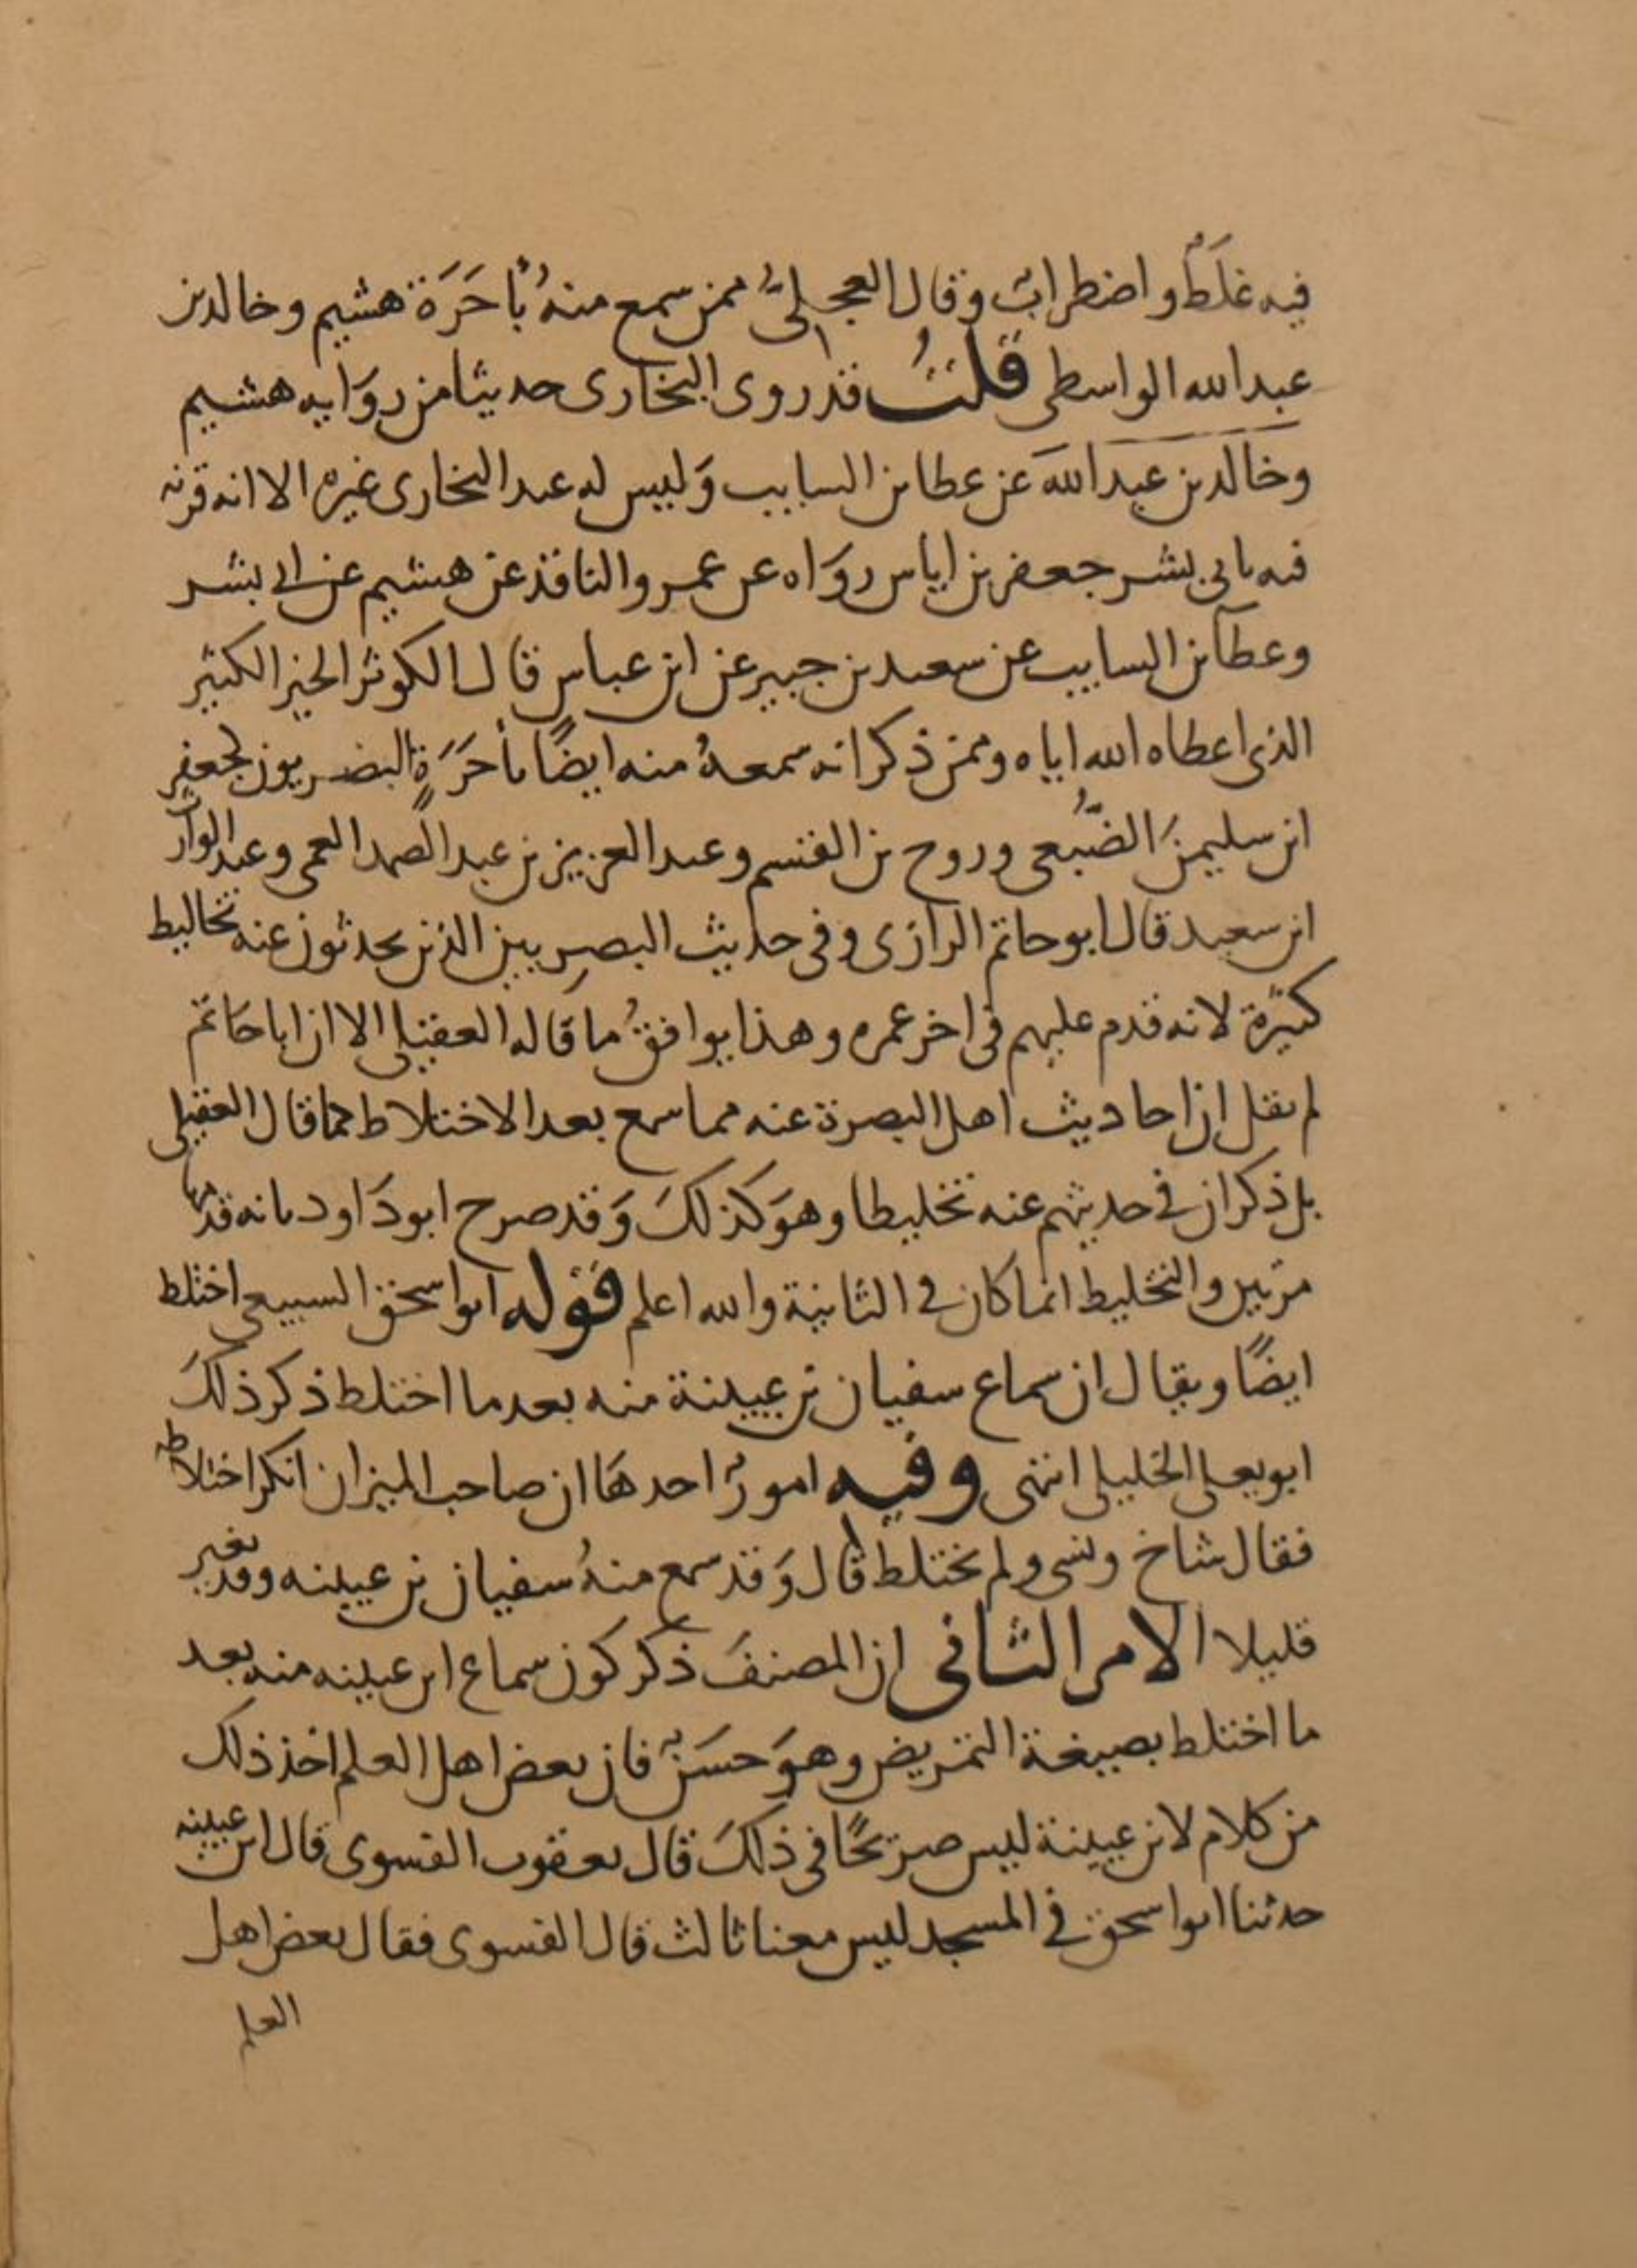 فيه غلَطٌ واضطرابٌ وقال العجليُّ ممن سمع منهُ بأَخَرَة هشيم وخالد بن
عبد الله الواسطى قلتُ قد روى البخارى حديثا من رِوَايه هشيم
وخالد بن عبد الله عن عطا بن السايب وَليس له عند البخارى غيره الا انه قرنه
فيه بابى بشر جعفر بن اياس روَاه عن عمرو الناقد عن هشيم عن ابى بشر
وعطا بن السايب عن سعيد بن جبير عن ابن عباس قال الكوثر الخير الكثير
الذى اعطاه الله اياه وممن ذكر انه سمعهُ منه ايضًا بأَخَرَةٍ البصريون كجعفر
ابن سليمن الضُّبَعى وروح بن القسم وعبد العزيز بن عبد الصمد العمى وعبد الوارث
ابن سعيد قال ابو حاتم الرازى وفى حديث البصريين الذين يحدثون عنه تخاليط
كثيرة لانه قدم عليهم فى اخر عمره وهذا يوافقُ ما قاله العقيلى الا ان ابا حَاتم
لم يقل ان احاديث اهل البصرة عنه مما سمع بعد الاختلاط كما قال العقيلى
بل ذكر ان في حديثهم عنه تخليطا وهوَ كذلكَ وَقد صرح ابو دَاود بانه قدمها
مرتين والتخليط انما كان في الثانية والله اعلم قوله ابو اسحق السبيعى اختلط
ايضًا ويقال ان سماع سفيان بن عيينة منه بعد ما اختلط ذكر ذلكَ
ابو يعلى الخليلى انتهى وفيه امورٌ احدهَا ان صاحب الميزان انكر اختلاطه
فقال شاخ ونسى ولم يختلط قال وَقد سمع منهُ سفيان بن عيينه وقد تغير
قليلا الامر الثانى ان المصنفَ ذكر كون سماع ابن عيينه منه بعد
ما اختلط بصيغة التمريض وهوَ حسَنٌ فان بعض اهل العلم اخذ ذلك
من كلام لابن عيينة ليس صريحًا فى ذلكَ قال يعقوب الفسوى قال ابن عيينه
حدثنا ابو اسحق في المسجد ليس معنا ثالث قال الفسوى فقال بعض اهل
العلم